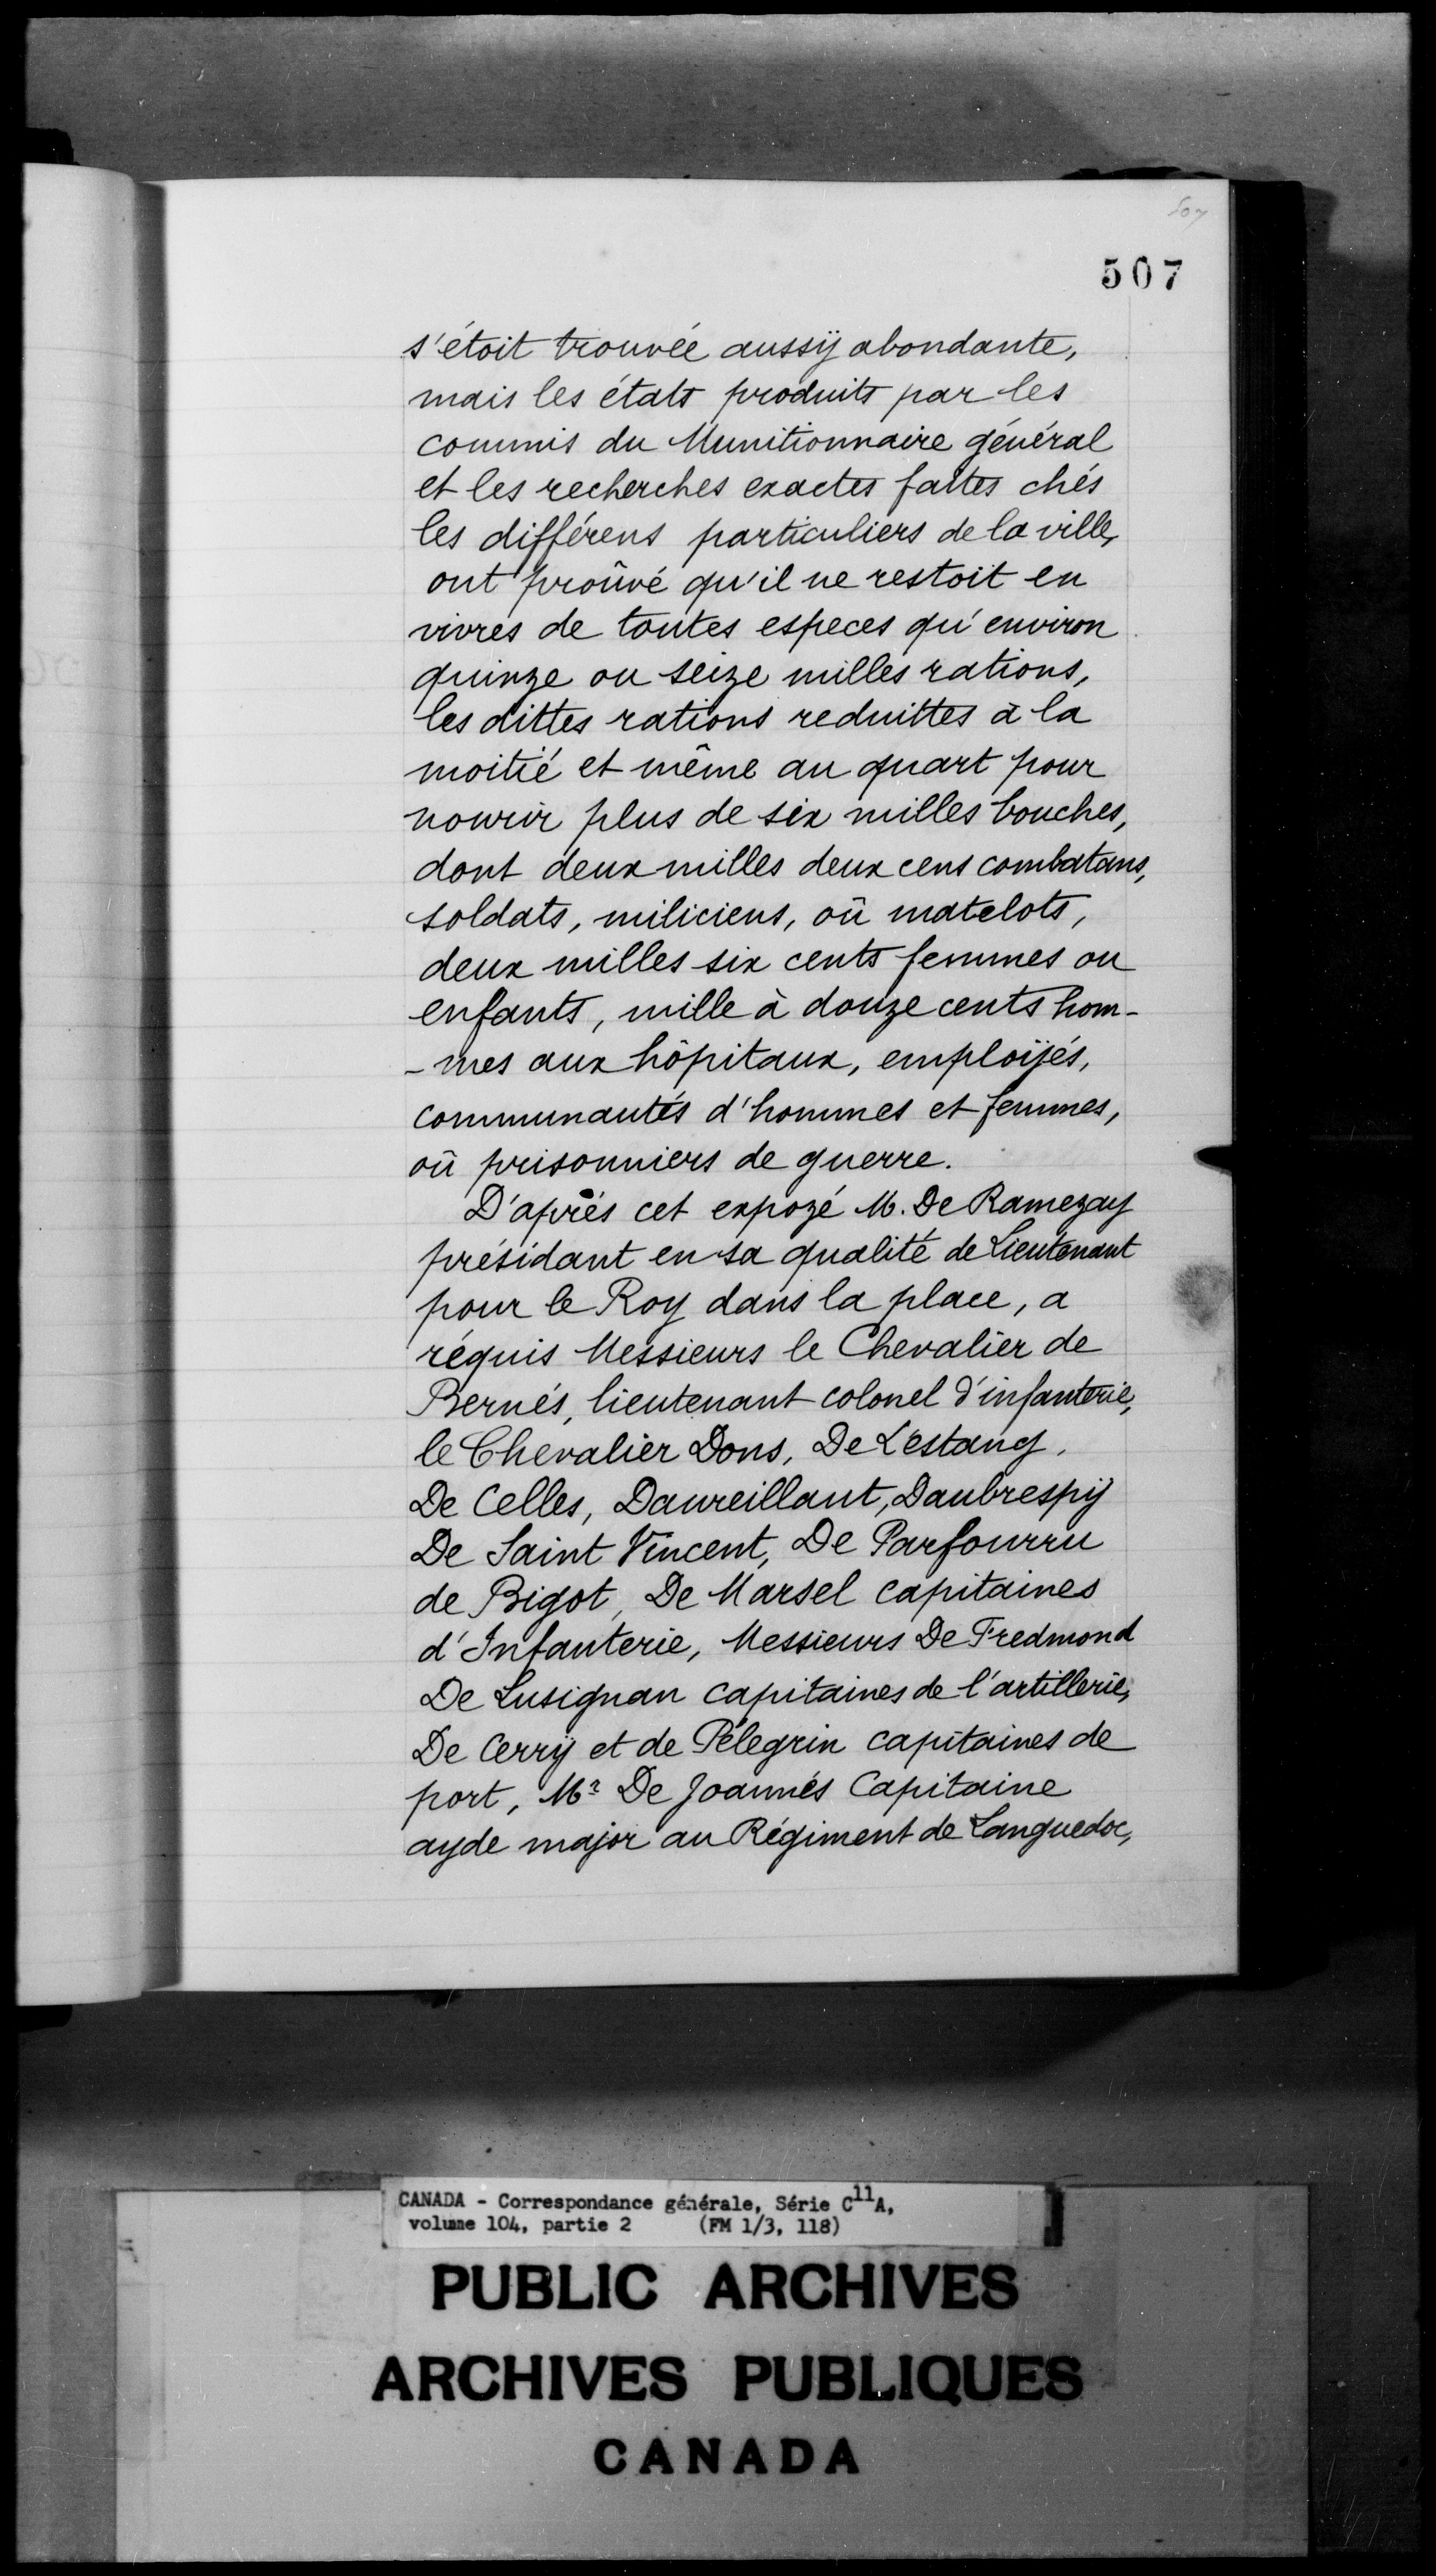 507
507
s'étoit trouvée aussÿ abondante,
mais les états produits par les
commis du Munitionnaire général
et les recherches exactes faites chés
les différens particuliers de la ville,
ont proûvé qu'il ne restoit en
vivres de toutes especes qu'environ
quinze ou seize milles rations,
les dittes rations reduittes à la
moitié et même au quart pour
nourir plus de six milles bouches,
dont deux milles deux cens combatans,
soldats, miliciens, oû matelots,
deux milles six cents femmes ou
enfants, mille à douze cents hom-
-mes aux hôpitaux, emploÿés,
communautés d'hommes et femmes,
oû prisonniers de guerre.
D'après cet expozé M. De Ramezay
présidant en sa qualité de Lieutenant
pour le Roy dans la place, a
réquis Messieurs le Chevalier de
Bernés, lieutenant colonel d'infanterie,
le Chevalier Dons, De L'estang,
De Celles, Daureillant, Daubrespÿ
De Saint Vincent, De Parfourru
de Bigot, De Marsel capitaines
d'Infanterie, Messieurs De Fredmond
De Lusignan capitaines de l'artillerie,
De Cerrÿ et de Pélegrin capitaines de
port, Mr De Joannés Capitaine
ayde major au Régiment de Languedoc,
CANADA - Correspondance générale, Série C11A,
volume 104, partie 2 (FM 1/3, 118)
PUBLIC ARCHIVES
ARCHIVES PUBLIQUES
CANADA